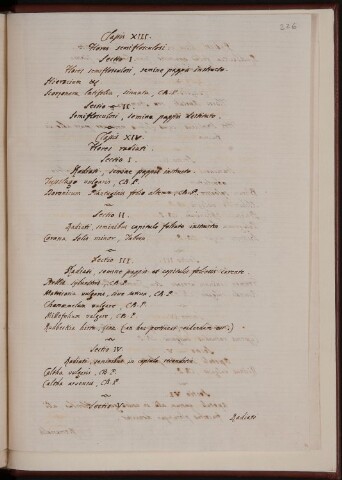 226
Classis XIII.
Flores semiflosculosi
Sectio I
Flores semiflosculosi, semine pappis instructo.
Hieracium
Scorzonera latifolia, sinuata, C.B.P.
Sectio II
Semiflosculosi, semine pappis destituto.
Classis XIV.
Flores radiati.
Sectio I.
Radiati, semine pappis instructo.
Tussilago vulgaris, C.B.P.
Doronicum Plantaginis folio alterum, C.B.P.
Sectio II.
Radiati, seminibus capitulo foliato instructis
Corona Solis minor,
Sectio III.
Radiati, semine pappis et capitulo foliaceo carente
Bellis sylvestris, C.B.P.
Matricaria vulgaris, sive sativa, C.B.P.
Chamaemelum vulgare, C.B.P.
Millefolium vulgare, C.B.P.
Rudbeckia
Sectio IV.
Radiati, seminibus in capsulis reconditis
Caltha vulgaris, C.B.P.
Caltha arvensis, C.B.P.
Sectio V.
Radiati